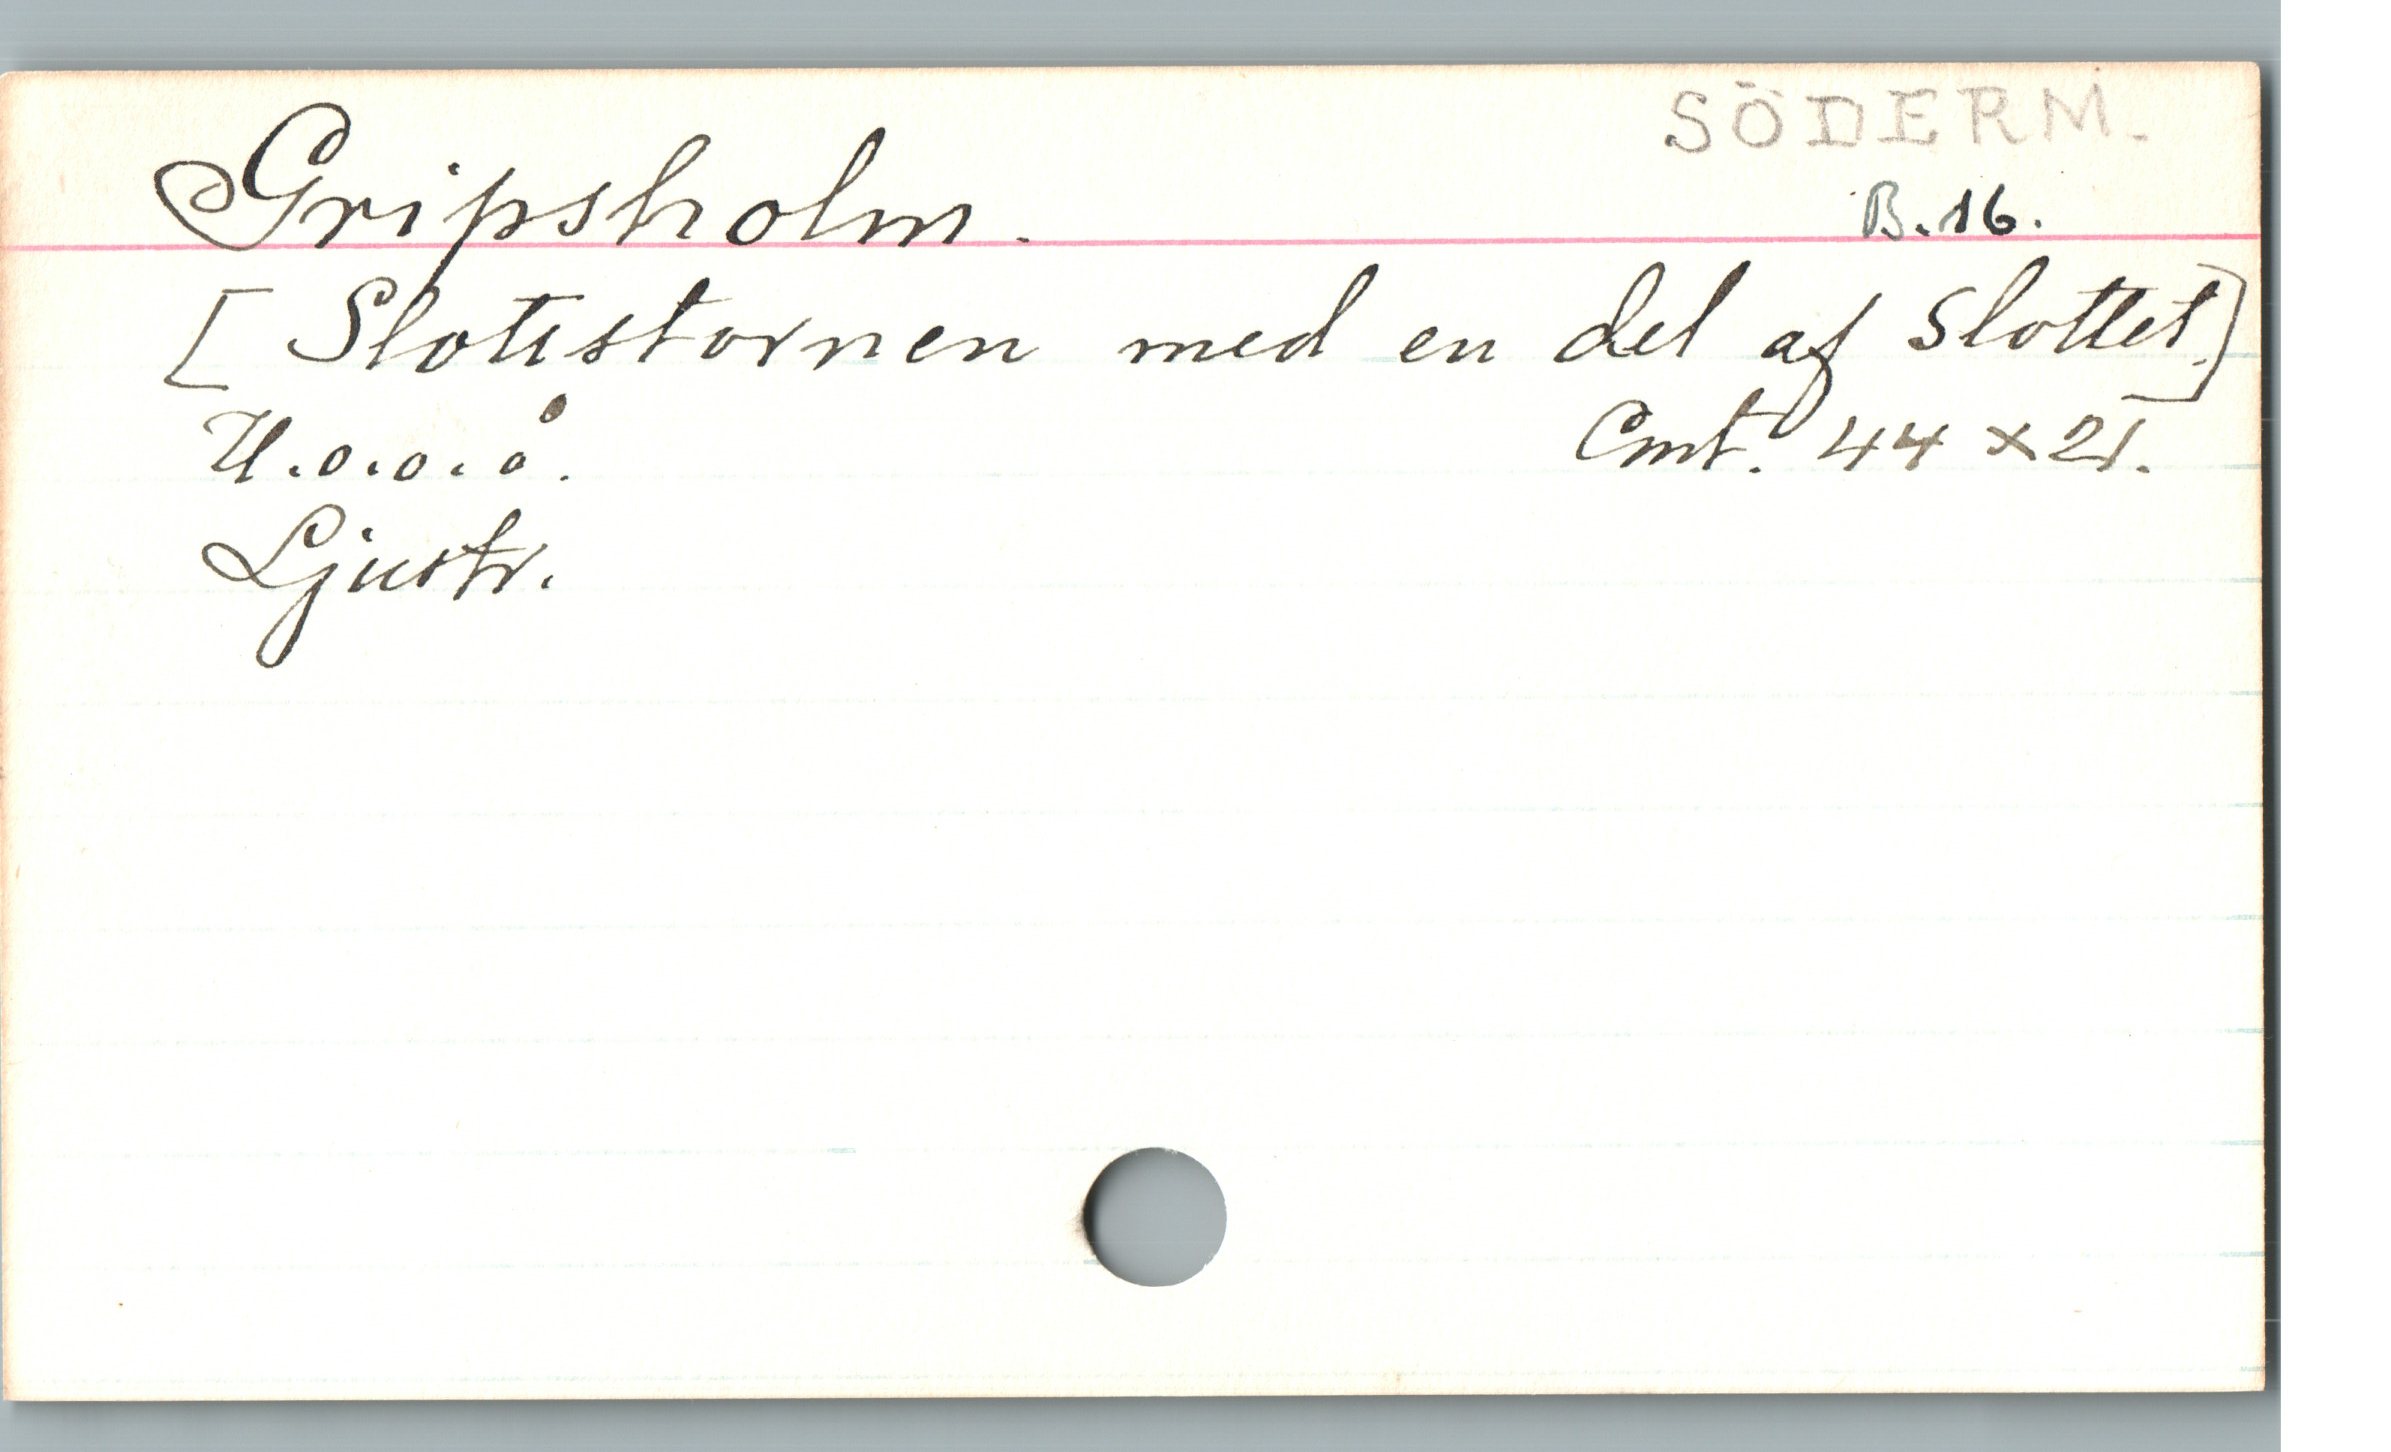 SÖDERM.
Gripsholm. B. 16.
[Slottstornen med en del af slottet.]
U.o.o.å. Cmt. 44 x 21.
Ljustr.